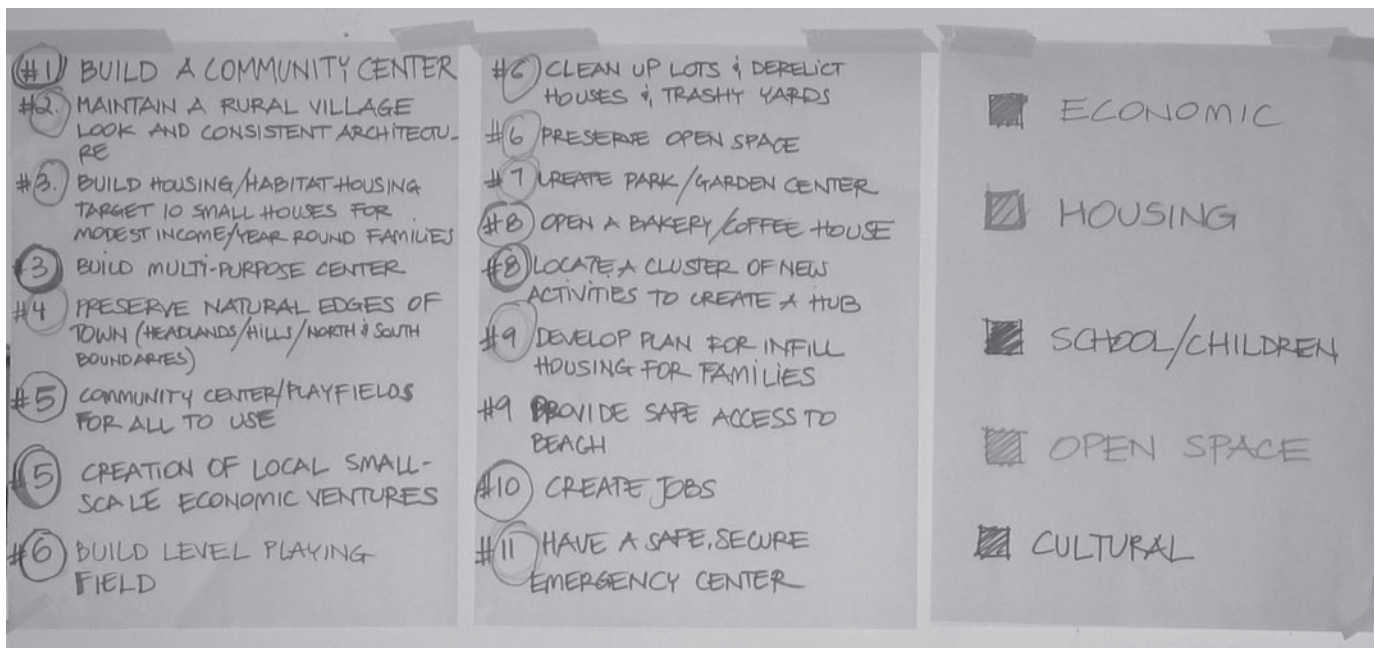 #1 BUILD A COMMUNITY CENTER
#2. MAINTAIN A RURAL VILLAGE
LOOK AND CONSISTENT ARCHITECTU-
RE
#3. BUILD HOUSING/HABITAT HOUSING
TARGET 10 SMALL HOUSES FOR
MODEST INCOME/YEAR ROUND FAMILIES
#3 BUILD MULTI-PURPOSE CENTER
#4 PRESERVE NATURAL EDGES OF
TOWN (HEADLANDS/HILLS/NORTH & SOUTH
BOUNDARIES)
#5 COMMUNITY CENTER/PLAYFIELDS
FOR ALL TO USE
#5 CREATION OF LOCAL SMALL-
SCALE ECONOMIC VENTURES
#6 BUILD LEVEL PLAYING
FIELD
#6 CLEAN UP LOTS & DERELICT
HOUSES & TRASHY YARDS
#6 PRESERVE OPEN SPACE
#7 CREATE PARK/GARDEN CENTER
#8 OPEN A BAKERY/COFFEE HOUSE
#8 LOCATE A CLUSTER OF NEW
ACTIVITIES TO CREATE A HUB
#9 DEVELOP PLAN FOR INFILL
HOUSING FOR FAMILIES
#9 PROVIDE SAFE ACCESS TO
BEACH
#10 CREATE JOBS
#11 HAVE A SAFE, SECURE
EMERGENCY CENTER
ECONOMIC
HOUSING
SCHOOL/CHILDREN
OPEN SPACE
CULTURAL